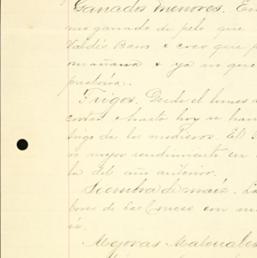 Ganados menores. En
mo ganado de pelo que
Valdés Baus
mañana & ya que
pastoría.
Trigos. Desde el lunes
cortar & hasta hoy se han
trigo de los medieros. El
es mejor rendimiento en
la del año anterior.
Siembra de maíz. La
bores de las Cruces con
Mejoras Materiales